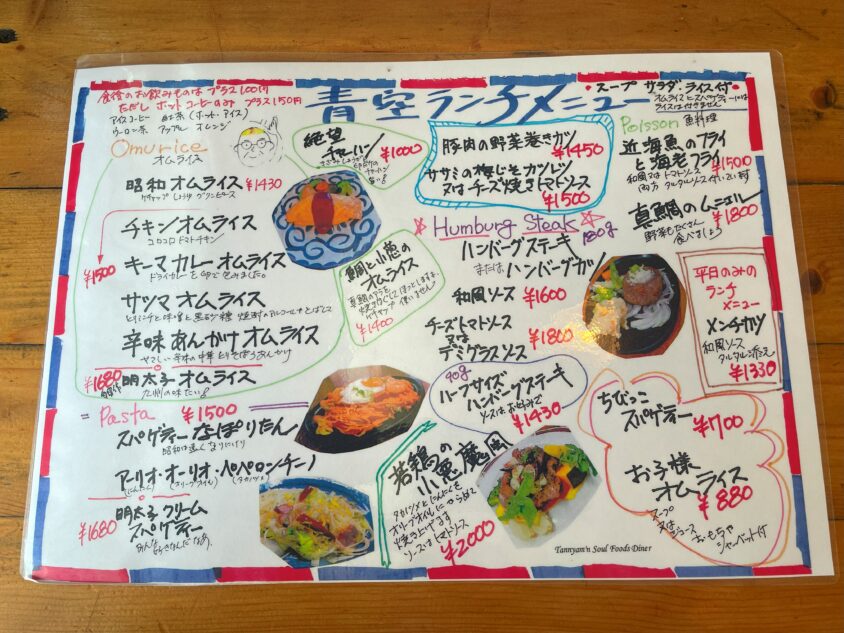 食後のお飲みものは プラス100円
ただし ホットコーヒーのみ プラス150円
アイスコーヒー 紅茶(ホット・アイス)
ウーロン茶 アップル オレンジ
青空ランチメニュー
・スープ サラダ・ライス付・
オムライスとスパゲティーには
ライスは付きません
Omurice
オムライス
昭和オムライス ¥1430
チキンオムライス
コロコロ トマトチキン
¥1500
キーマカレーオムライス
ドライカレーを卵で包みました。
サツマオムライス
辛味あんかけオムライス
¥1680 明太子オムライス
九州の味だい!
絶望
チャーハン
¥1000
真鯛と小葱の
オムライス
¥1400
Pasta ¥1500
スパゲティーなぽりたん
アーリオ・オーリオ・ペペロンチーノ
(にんにく) (オリーブオイル) (タカノツメ)
¥1680 明太子クリーム
スパゲティー
みんな
好きなんだなあ。
豚肉の野菜巻きカツ
¥1450
ササミの梅じそカツレツ
又はチーズ焼きトマトソース
¥1500
Humburg Steak
180g
ハンバーグステーキ
または ハンバーグカツ
和風ソース ¥1600
チーズトマトソース
又は ¥1800
デミグラスソース
90g
ハーフサイズ
ハンバーグステーキ
ソースはお好みで
¥1430
若鶏の
小悪魔風
タカノツメとにんにくを
オリーブオイルにからめて
焼き上げます
ソースはトマトソース
¥2000
Poisson 魚料理
近海魚のフライ
と海老フライ
¥1500
和風又はトマトソース
真鯛のムニエル
¥1800
野菜もたくさん
食べましょう
平日のみの
ランチ
メニュー
メンチカツ
和風ソース
タルタル添え
¥1330
ちびっこ
スパゲティー
¥700
お子様
オムライス
¥880
スープ
又は
ジュース
おもちゃ
シャーベット付
Tannyam'n Soul Foods Diner